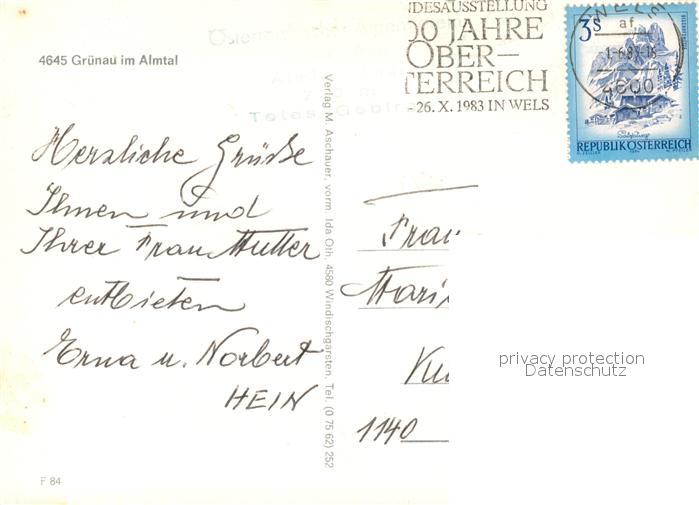 4645 Grünau im Almtal
Herzliche Grüße
Ihnen und
Ihrer Frau Mutter
entbieten
Erna u. Norbert
HEIN
F 84
Verlag M. Aschauer, vorm. Ida Oth, 4580 Windischgarsten, Tel. (0 75 62) 252
NDESAUSSTELLUNG
00 JAHRE
OBER-
TERREICH
-26. X. 1983 IN WELS
af
4600
3S
REPUBLIK ÖSTERREICH
Frau
Mari
1140
privacy protection
Datenschutz